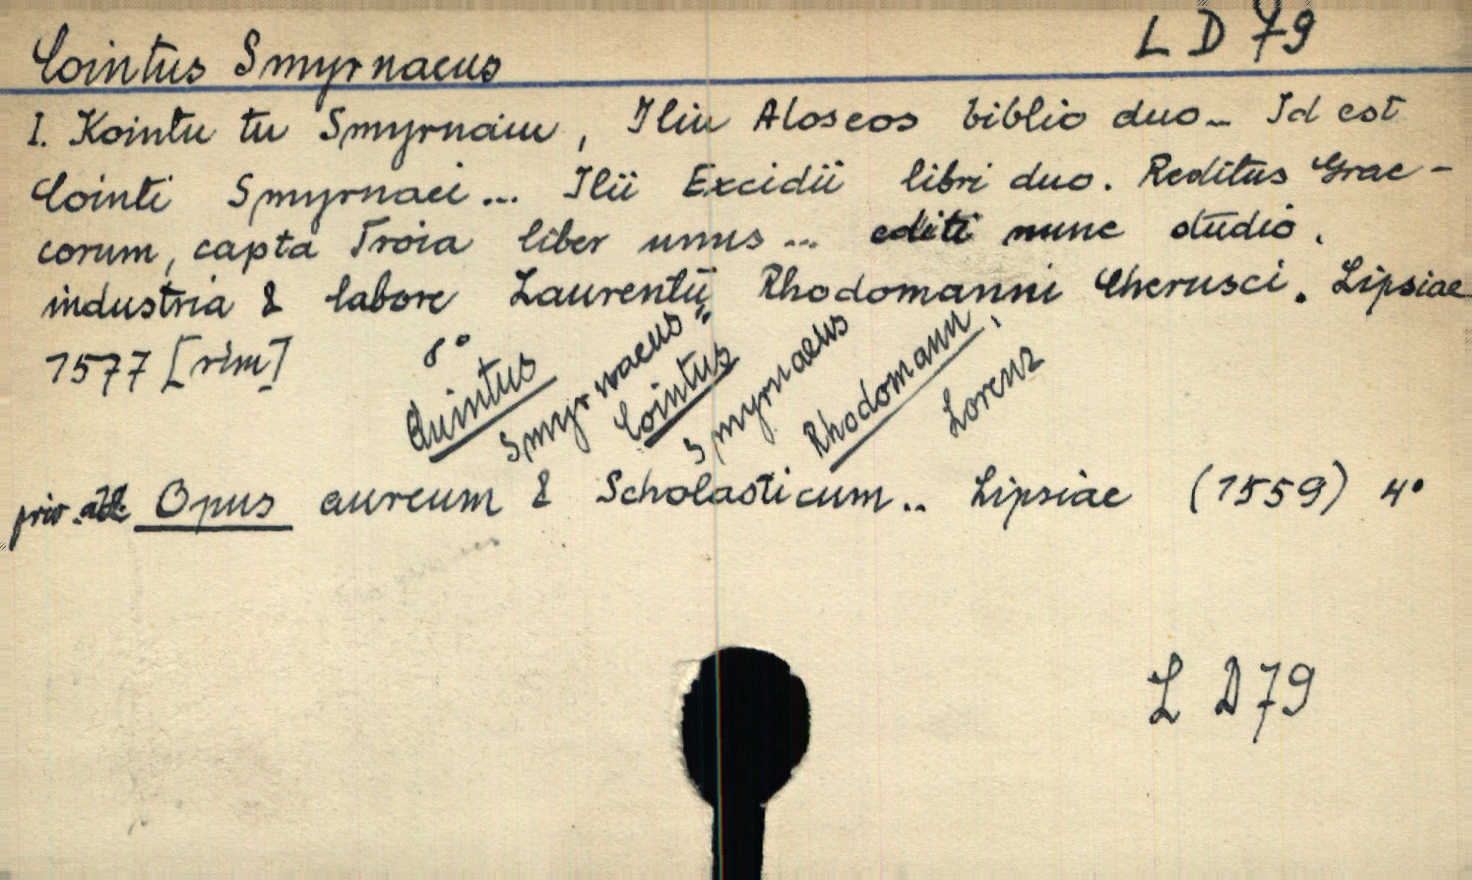 Cointus Smyrnaeus
L D 79
I. Kointu tu Smyrnaiu, Iliu Aloseos biblio duo... Id est
Cointi Smyrnaei... Ilii Excidii libri duo. Reditus Grae-
corum, capta Troia liber unus... editi nunc studio,
industria & labore Laurentii Rhodomanni Cherusci. Lipsiae
1577 [rim] 8°
Quintus Smyrnaeus
Cointus Smyrnaeus
Rhodomann, Lorenz
priv. Opus aureum & Scholasticum.. Lipsiae (1559) 4°
L D 79